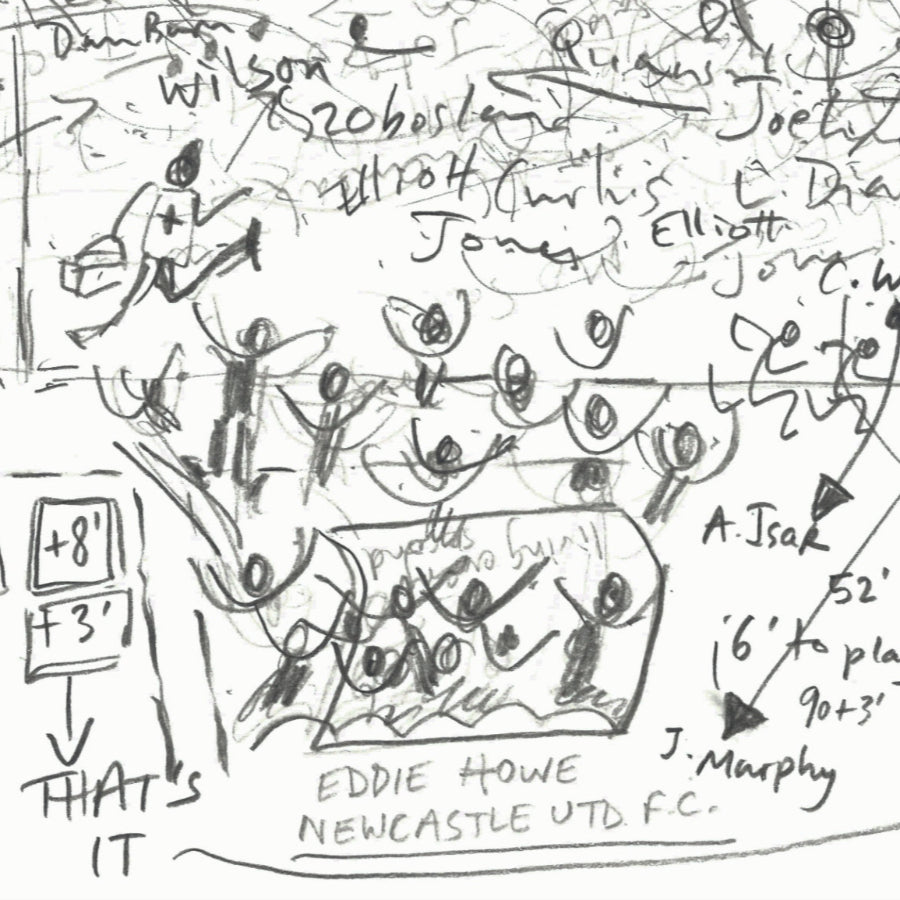 Dan Burn
Wilson
Szoboszlai
Joel
Elliott Curtis
Jones
L. Dia
Elliott
Jon
C. W
+8'
+3'
THAT'S
IT
living
A. Isak
52'
'6' to pla
90+3'
J. Murphy
EDDIE HOWE
NEWCASTLE UTD. F.C.